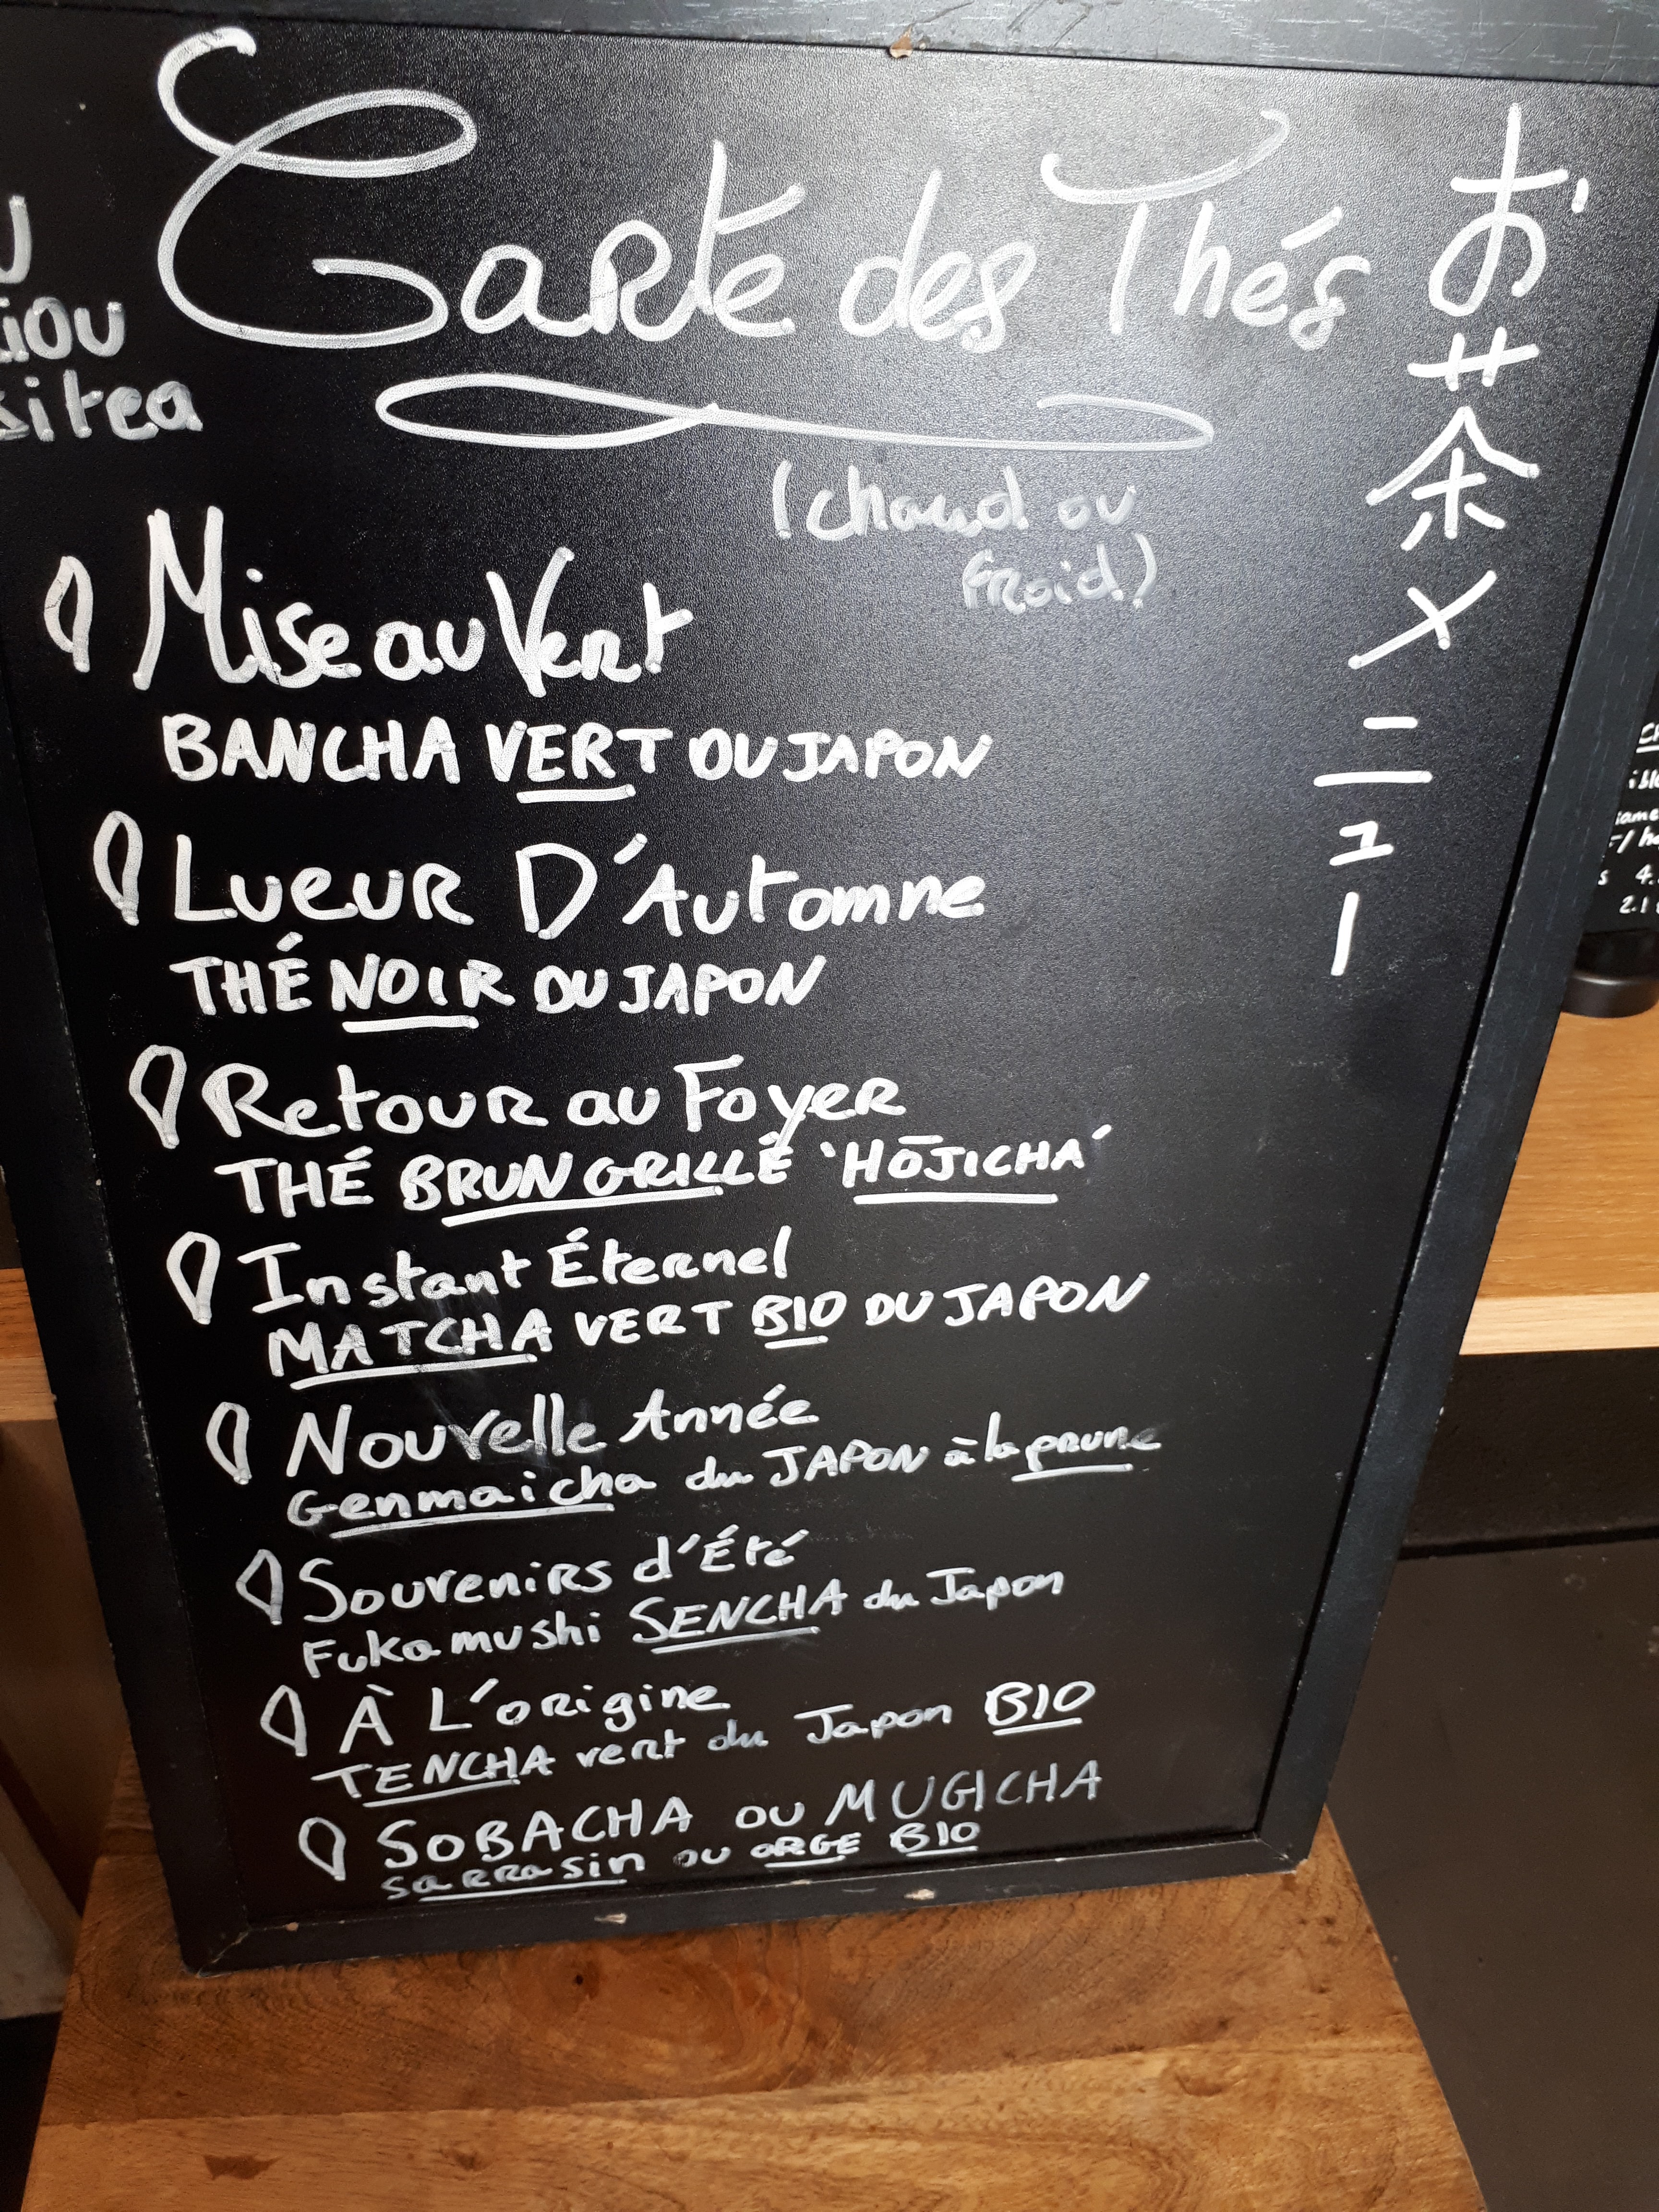 Carte des Thés
(chaud ou
froid)
お茶メニュー
Mise au Vert
BANCHA VERT DU JAPON
Lueur D'Automne
THÉ NOIR DU JAPON
Retour au Foyer
THÉ BRUN GRILLÉ 'HŌJICHA'
Instant Éternel
MATCHA VERT BIO DU JAPON
Nouvelle Année
Genmaicha du JAPON à la prune
Souvenirs d'Été
Fukamushi SENCHA du Japon
À L'origine
TENCHA vert du Japon BIO
SOBACHA ou MUGICHA
sarrasin ou ORGE BIO